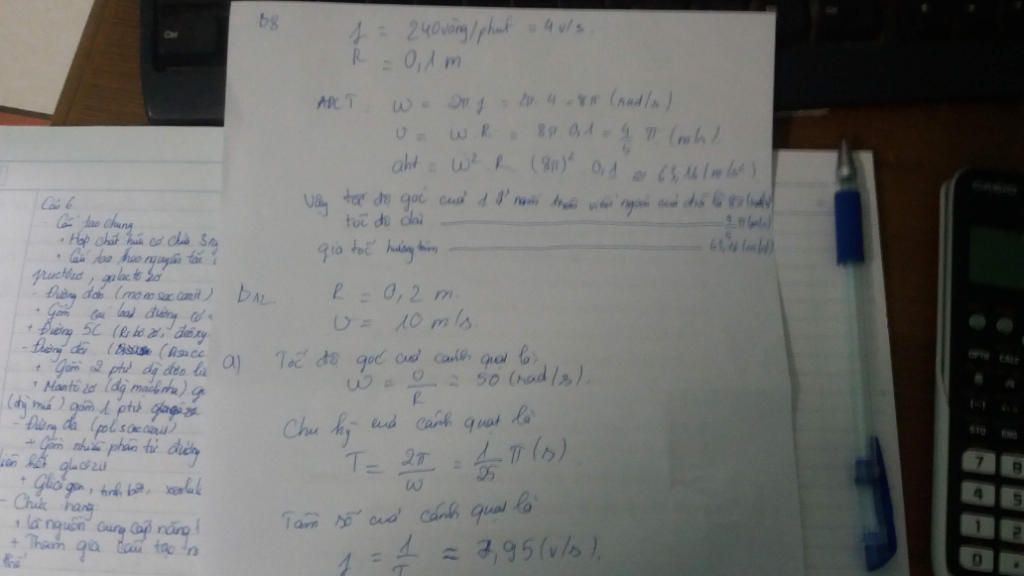 B8
f = 240 vòng/phút = 4 v/s.
R = 0,1 m
ADCT: ω = 2πf = 2π.4 = 8π (rad/s)
v = ω.R = 8π.0,1 = π (m/s)
aht = ω².R (8π)².0,1 ≈ 63,16 (m/s²)
Vậy tốc độ góc của 1 là 8π (rad/s)
tốc độ dài π (m/s)
gia tốc hướng tâm 63,16 (m/s²)
B12
R = 0,2 m.
v = 10 m/s.
a) Tốc độ góc của cánh quạt là:
ω = v/R = 50 (rad/s).
Chu kỳ của cánh quạt là
T = 2π/ω = 1/25 π (s)
Tần số của cánh quạt là
f = 1/T ≈ 7,95 (v/s).
Câu 6
Cấu tạo chung
• Hợp chất hữu cơ chứa 3 ng
• Cấu tạo theo nguyên tắc
fructôzơ, galactôzơ
- Đường đơn (monosaccarit)
+ Gồm các loại đường có
+ Đường 5C (Ribôzơ, đêôxy
- Đường đôi (Đisacc
+ Gồm 2 ptử đg đơn li
+ Mantôzơ (đg mạch nha) g
(đg mía) gồm 1 ptử
- Đường đa (polisaccarit)
+ Gồm nhiều phân tử đường
liên kết glucôzit
+ Glicôgen, tinh bột, xenlulô
- Chức năng:
+ Là nguồn cung cấp năng l
+ Tham gia cấu tạo n
thể
CASIO
Ctrl
OPTN
CALC
STO
ENG
7
8
4
5
1
2
0